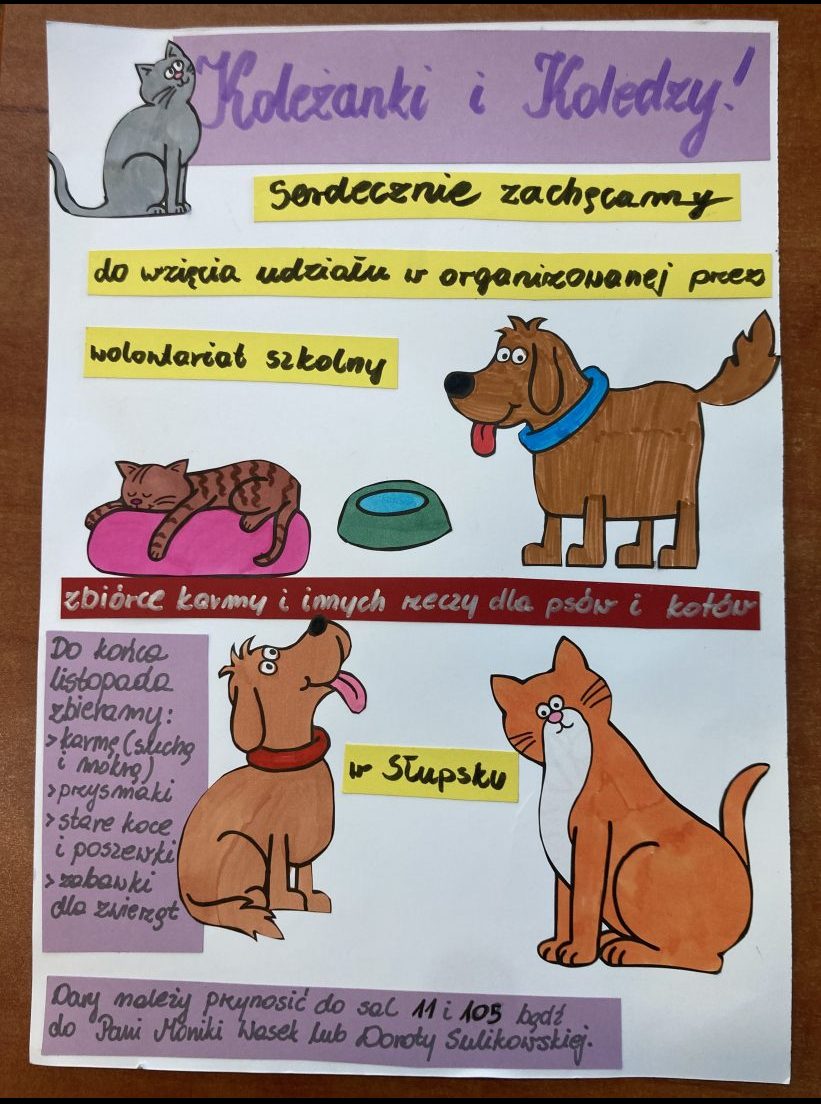 Koleżanki i Koledzy!
Serdecznie zachęcamy
do wzięcia udziału w organizowanej przez
wolontariat szkolny
zbiórce karmy i innych rzeczy dla psów i kotów
w Słupsku
Do końca
listopada
zbieramy:
> karmę (suchą
i mokrą)
> przysmaki
> stare koce
i poszewki
> zabawki
dla zwierząt
Dary należy przynosić do sal 11 i 105 bądź
do Pani Moniki Wasek lub Doroty Sulikowskiej.